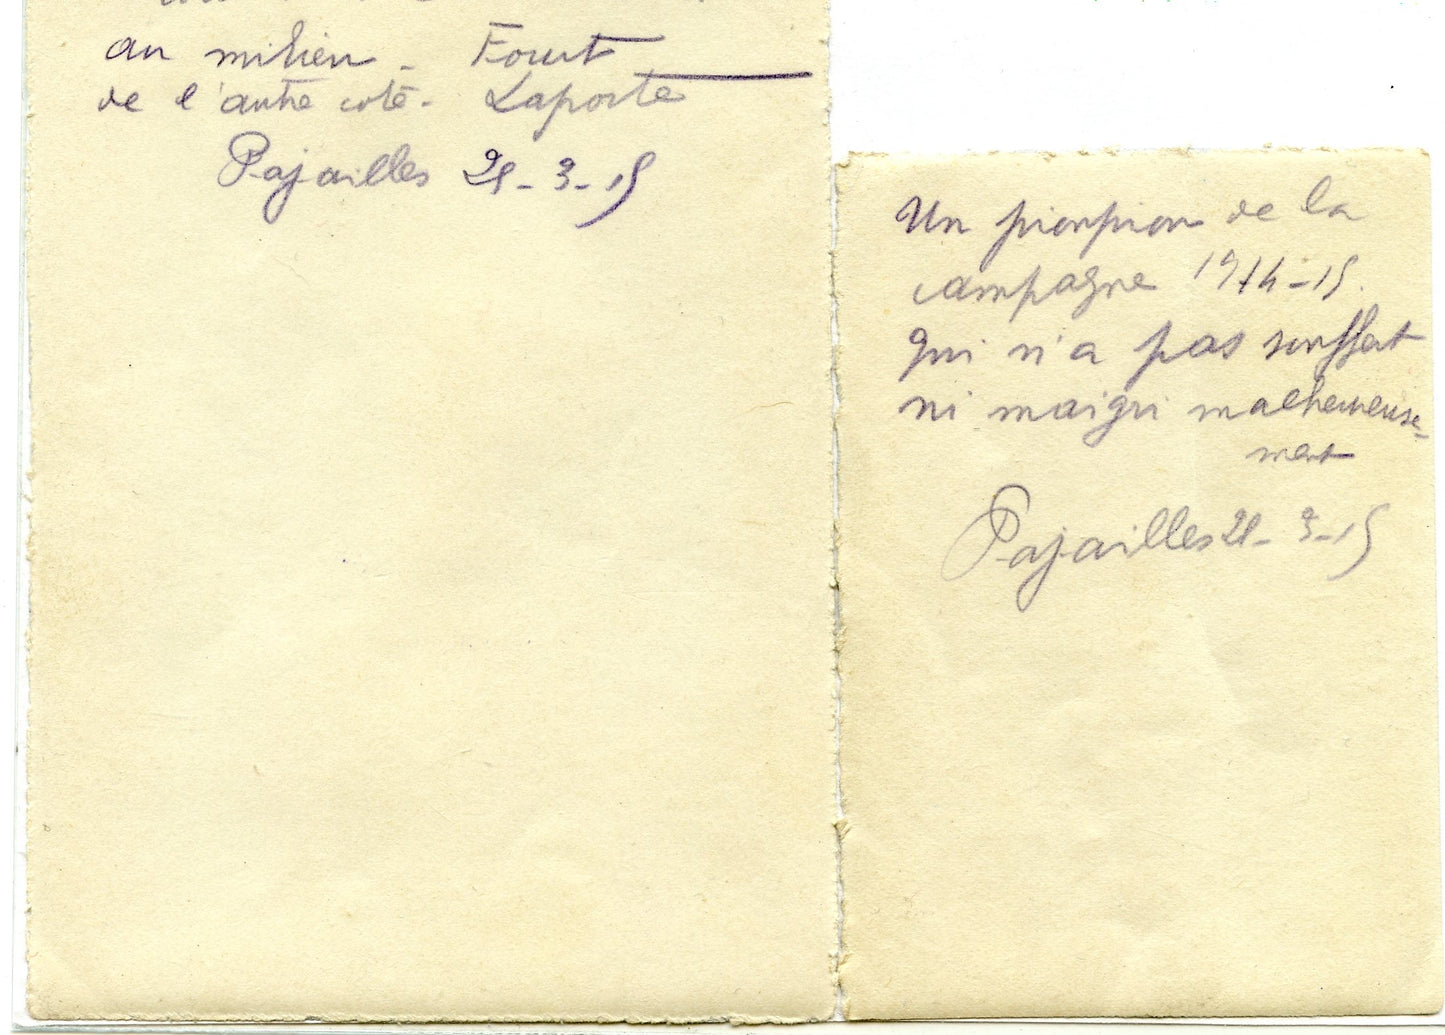 au milieu - Fourt
de l'autre coté - Laporte
Pajailles 21-3-15
Un pioupiou de la
campagne 1914-15.
qui n'a pas souffert
ni maigri malheureuse-
ment
Pajailles 21-3-15